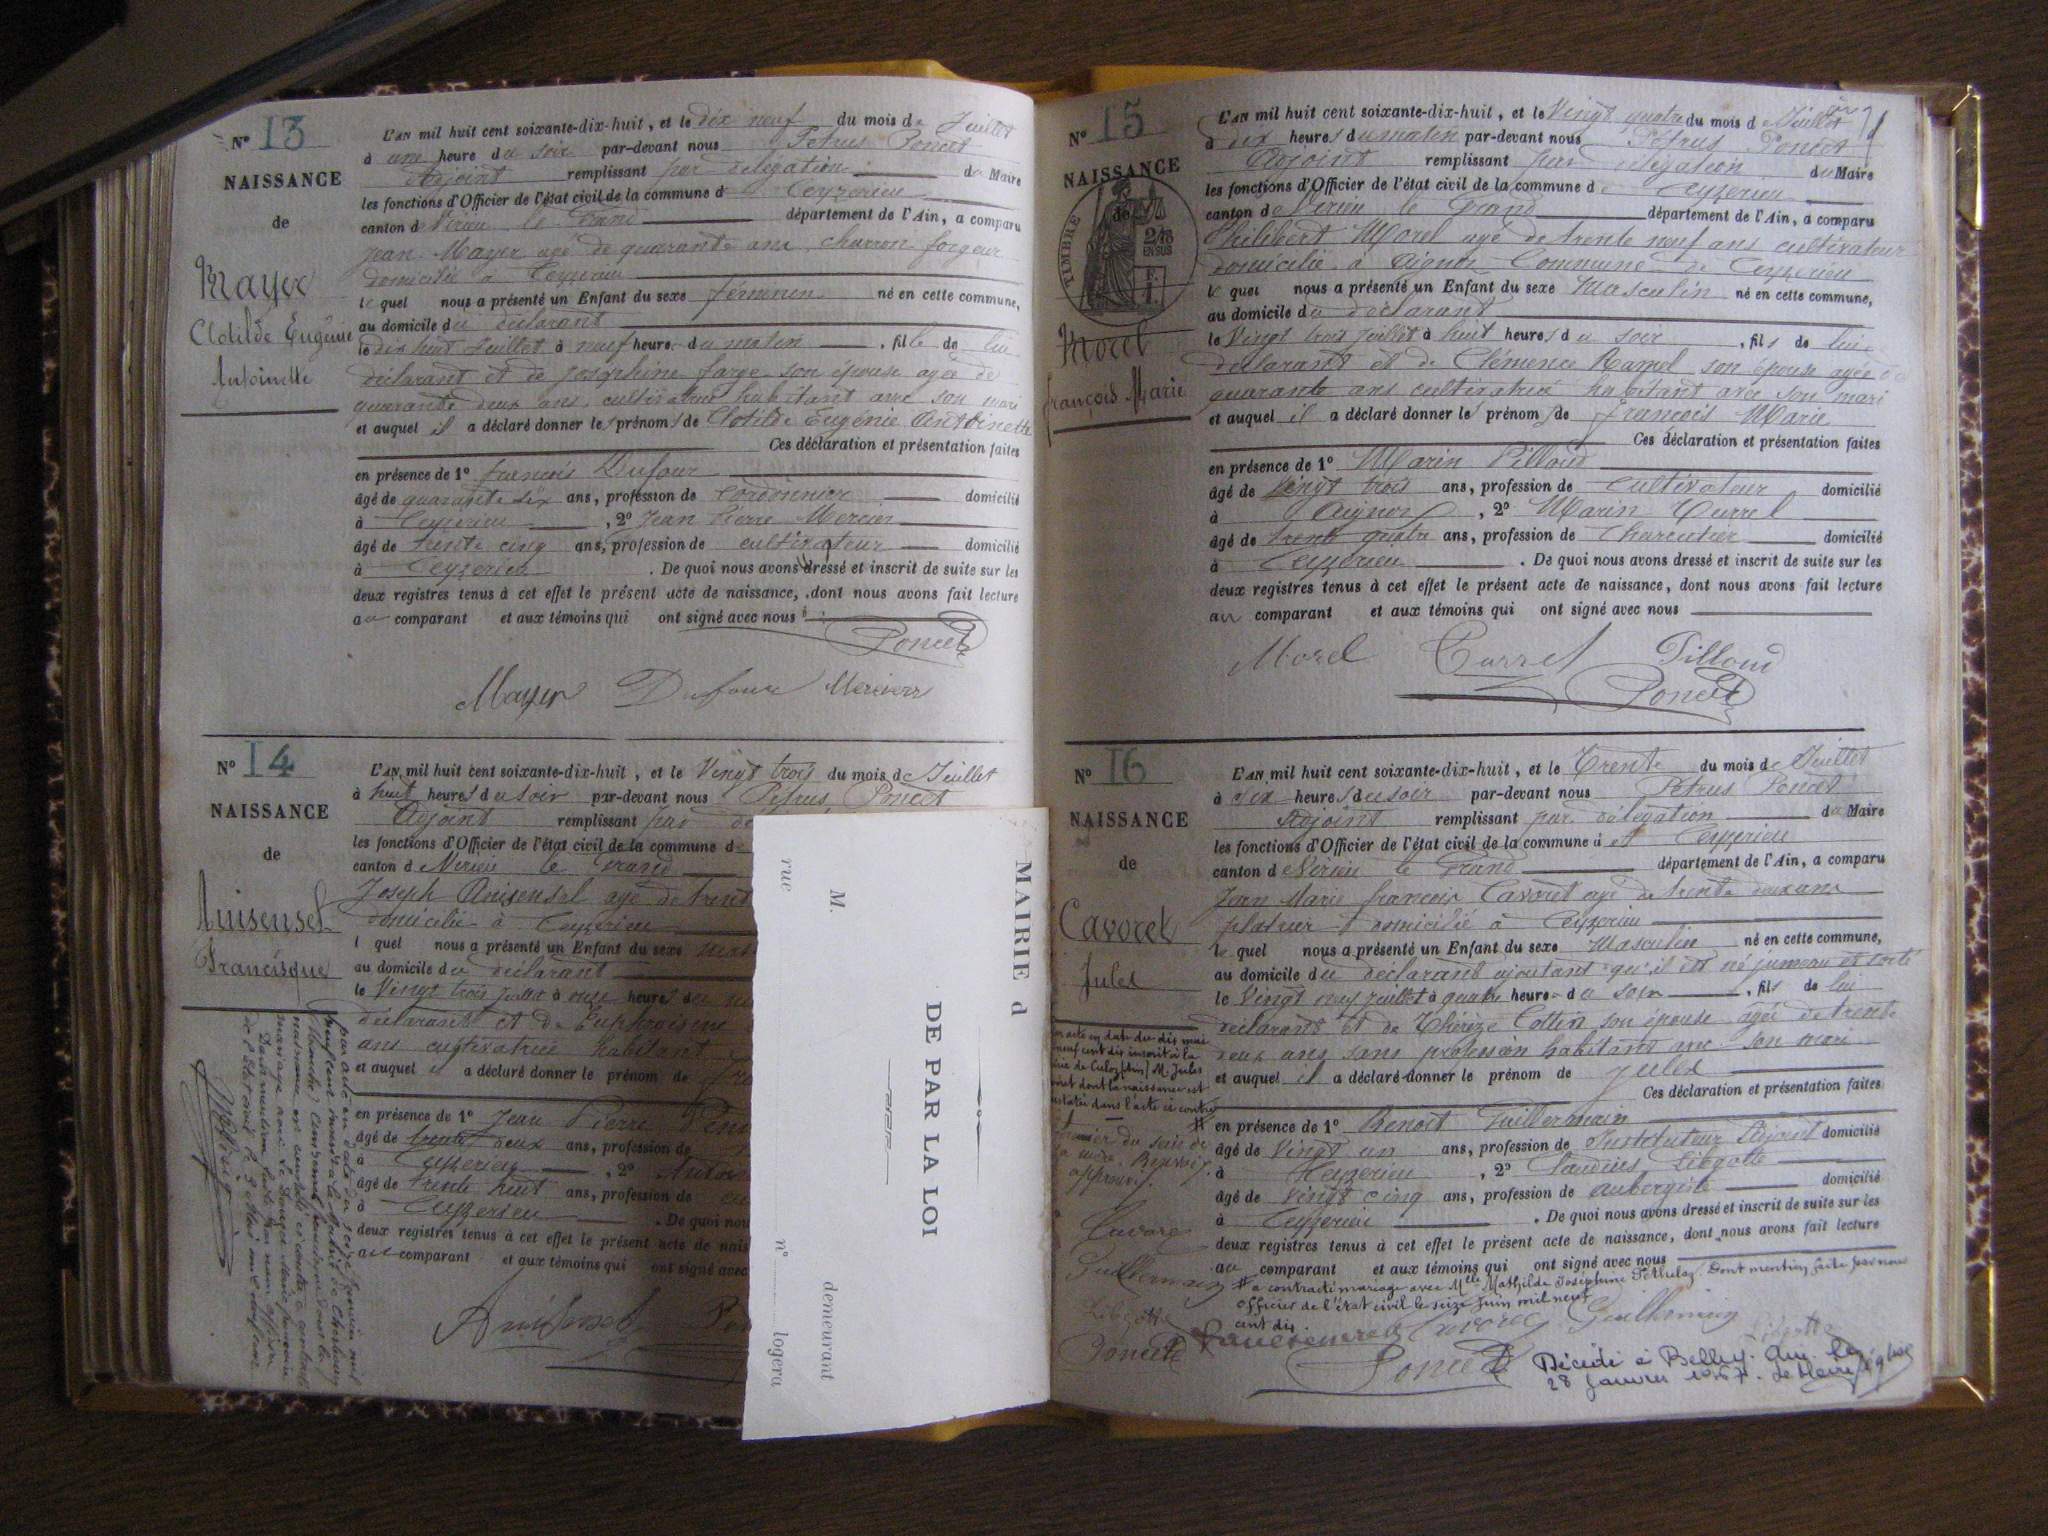 N° 13
NAISSANCE
de
Mayer
Clotilde Eugénie
Antoinette
L'AN mil huit cent soixante-dix-huit, et le dix neuf du mois de Juillet
à une heure du soir par-devant nous Pétrus Poncet
Adjoint remplissant par délégation du Maire
les fonctions d'Officier de l'état civil de la commune de Ceyzerieu
canton de Virieu le Grand département de l'Ain, a comparu
Jean Mayer agé de quarante ans charron forgeur
domicilié à Ceyzerieu
le quel nous a présenté un Enfant du sexe féminin né en cette commune,
au domicile du déclarant
le dix huit Juillet à neuf heures du matin, fille de lui
déclarant et de Joséphine Farge son épouse agée de
quarante deux ans, cultivatrice habitant avec son mari
et auquel il a déclaré donner les prénoms de Clotilde Eugénie Antoinette
Ces déclaration et présentation faites
en présence de 1° François Dufour
âgé de quarante six ans, profession de Cordonnier domicilié
à Ceyzerieu, 2° Jean Pierre Mercier
âgé de trente cinq ans, profession de cultivateur domicilié
à Ceyzerieu. De quoi nous avons dressé et inscrit de suite sur les
deux registres tenus à cet effet le présent acte de naissance, dont nous avons fait lecture
au comparant et aux témoins qui ont signé avec nous
Poncet
Mayer Dufour Mercier
N° 14
NAISSANCE
de
Anisensel
Francisque
L'AN mil huit cent soixante-dix-huit, et le Vingt trois du mois de Juillet
à huit heures du soir par-devant nous Pétrus Poncet
Adjoint remplissant par
les fonctions d'Officier de l'état civil de la commune de
canton de Virieu le Grand
Joseph Anisensel agé de
domicilié à Ceyzerieu
l quel nous a présenté un Enfant du sexe
au domicile du déclarant
le Vingt trois Juillet à onze heures du
déclarant et de Euphroisine
ans cultivatrice habitant
et auquel il a déclaré donner le prénom de
en présence de 1° Jean Pierre
âgé de trente deux ans, profession de
à Ceyzerieu, 2°
âgé de trente huit ans, profession de
à Ceyzerieu. De quoi nous
deux registres tenus à cet effet le présent acte de
au comparant et aux témoins qui ont signé avec
MAIRIE d
DE PAR LA LOI
M. demeurant
rue n° logera
N° 15
NAISSANCE
de
TIMBRE
2/10
EN SUS
Morel
François Marie
L'AN mil huit cent soixante-dix-huit, et le Vingt quatre du mois de Juillet
à dix heures du matin par-devant nous Pétrus Poncet
Adjoint remplissant par délégation du Maire
les fonctions d'Officier de l'état civil de la commune de Ceyzerieu
canton de Virieu le Grand département de l'Ain, a comparu
Philibert Morel agé de trente neuf ans cultivateur
domicilié à Aignoz Commune de Ceyzerieu
le quel nous a présenté un Enfant du sexe Masculin né en cette commune,
au domicile du déclarant
le Vingt trois Juillet à huit heures du soir, fils de lui
déclarant et de Clémence Ramel son épouse agée de
quarante ans cultivatrice habitant avec son mari
et auquel il a déclaré donner les prénoms de François Marie
Ces déclaration et présentation faites
en présence de 1° Marin Pilloud
âgé de Vingt trois ans, profession de Cultivateur domicilié
à Aignoz, 2° Marin Currel
âgé de trente quatre ans, profession de Charcutier domicilié
à Ceyzerieu. De quoi nous avons dressé et inscrit de suite sur les
deux registres tenus à cet effet le présent acte de naissance, dont nous avons fait lecture
au comparant et aux témoins qui ont signé avec nous
Morel Currel Pilloud
Poncet
N° 16
NAISSANCE
de
Cavoret
Jules
L'AN mil huit cent soixante-dix-huit, et le Trente du mois de Juillet
à six heures du soir par-devant nous Pétrus Poncet
Adjoint remplissant par délégation du Maire
les fonctions d'Officier de l'état civil de la commune de Ceyzerieu
canton de Virieu le Grand département de l'Ain, a comparu
Jean Marie François Cavoret agé de trente deux ans
platrier domicilié à Ceyzerieu
le quel nous a présenté un Enfant du sexe Masculin né en cette commune,
au domicile du déclarant ajoutant qu'il est né jumeau et sorti
le Vingt neuf juillet à quatre heures du soir, fils de lui
déclarant et de Thérèze Cottin son épouse agée de trente
deux ans sans profession habitant avec son mari
et auquel il a déclaré donner le prénom de Jules
Ces déclaration et présentation faites
en présence de 1° Benoit Guillermain
âgé de Vingt un ans, profession de Instituteur Adjoint domicilié
à Ceyzerieu, 2° Claudius Liégotte
âgé de Vingt cinq ans, profession de aubergiste domicilié
à Ceyzerieu. De quoi nous avons dressé et inscrit de suite sur les
deux registres tenus à cet effet le présent acte de naissance, dont nous avons fait lecture
au comparant et aux témoins qui ont signé avec nous
a contracté mariage avec Mlle Mathilde Joséphine Dont mention faite par nous
officier de l'état civil le seize Juin mil neuf
cent dix.
Cavoret Guillermain
Poncet
Décédé à Belley. Ain. le
28 Janvier 1967.